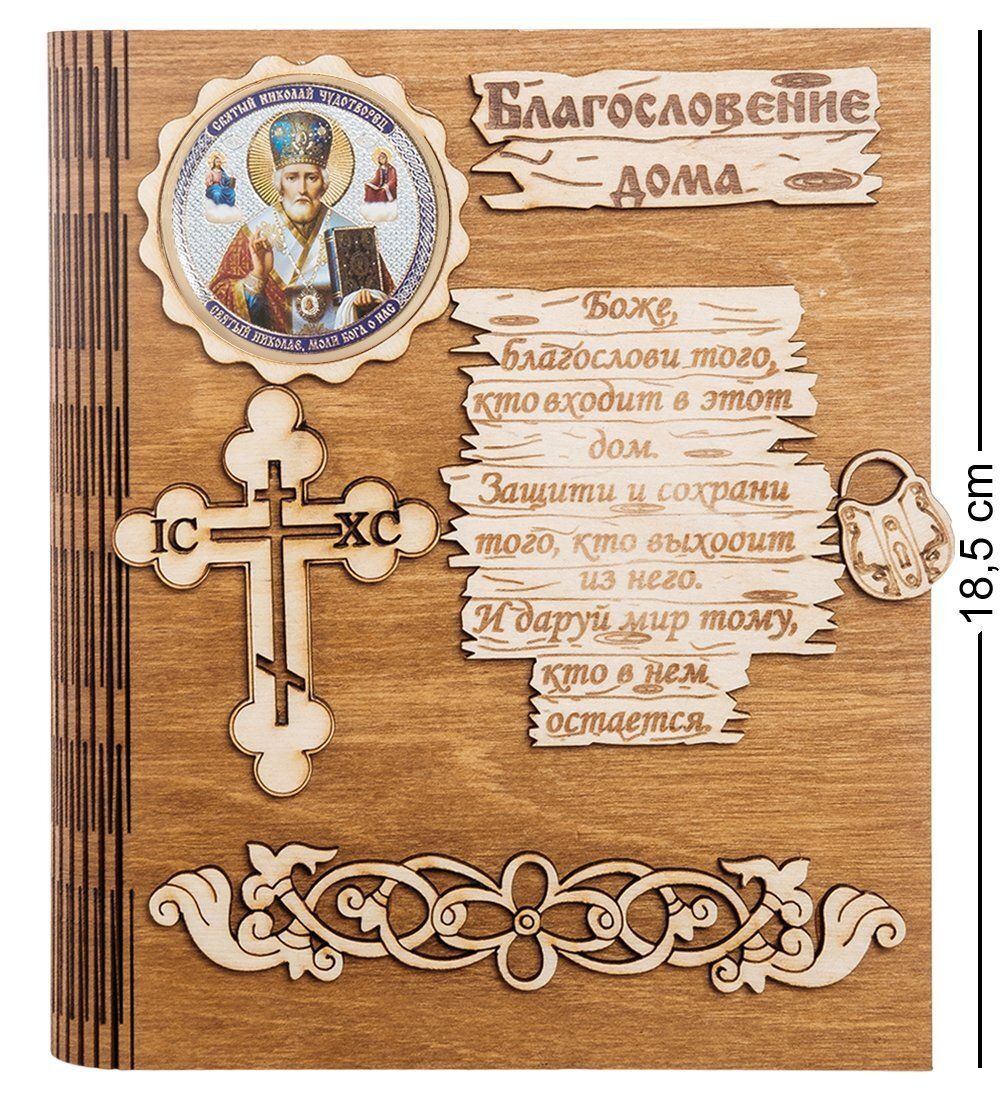 СВЯТЫЙ НИКОЛАЙ ЧУДОТВОРЕЦ
СВЯТЫЙ НИКОЛАЕ, МОЛИ БОГА О НАС
Благословение
дома
Боже,
Благослови того,
кто входит в этот
дом.
Защити и сохрани
того, кто выходит
из него.
И даруй мир тому,
кто в нем
остается.
IC XC
18,5 cm